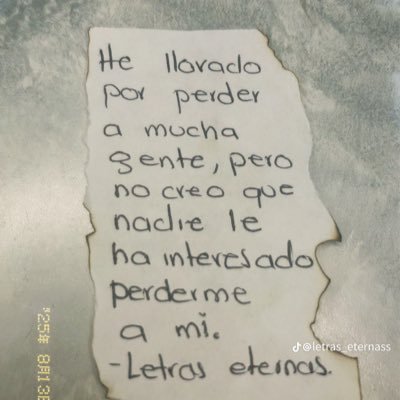 He llorado
por perder
a mucha
gente, pero
no creo que
nadie le
ha interesado
perderme
a mi.
-Letras eternas.
@letras_eternass
'25年 8月13日